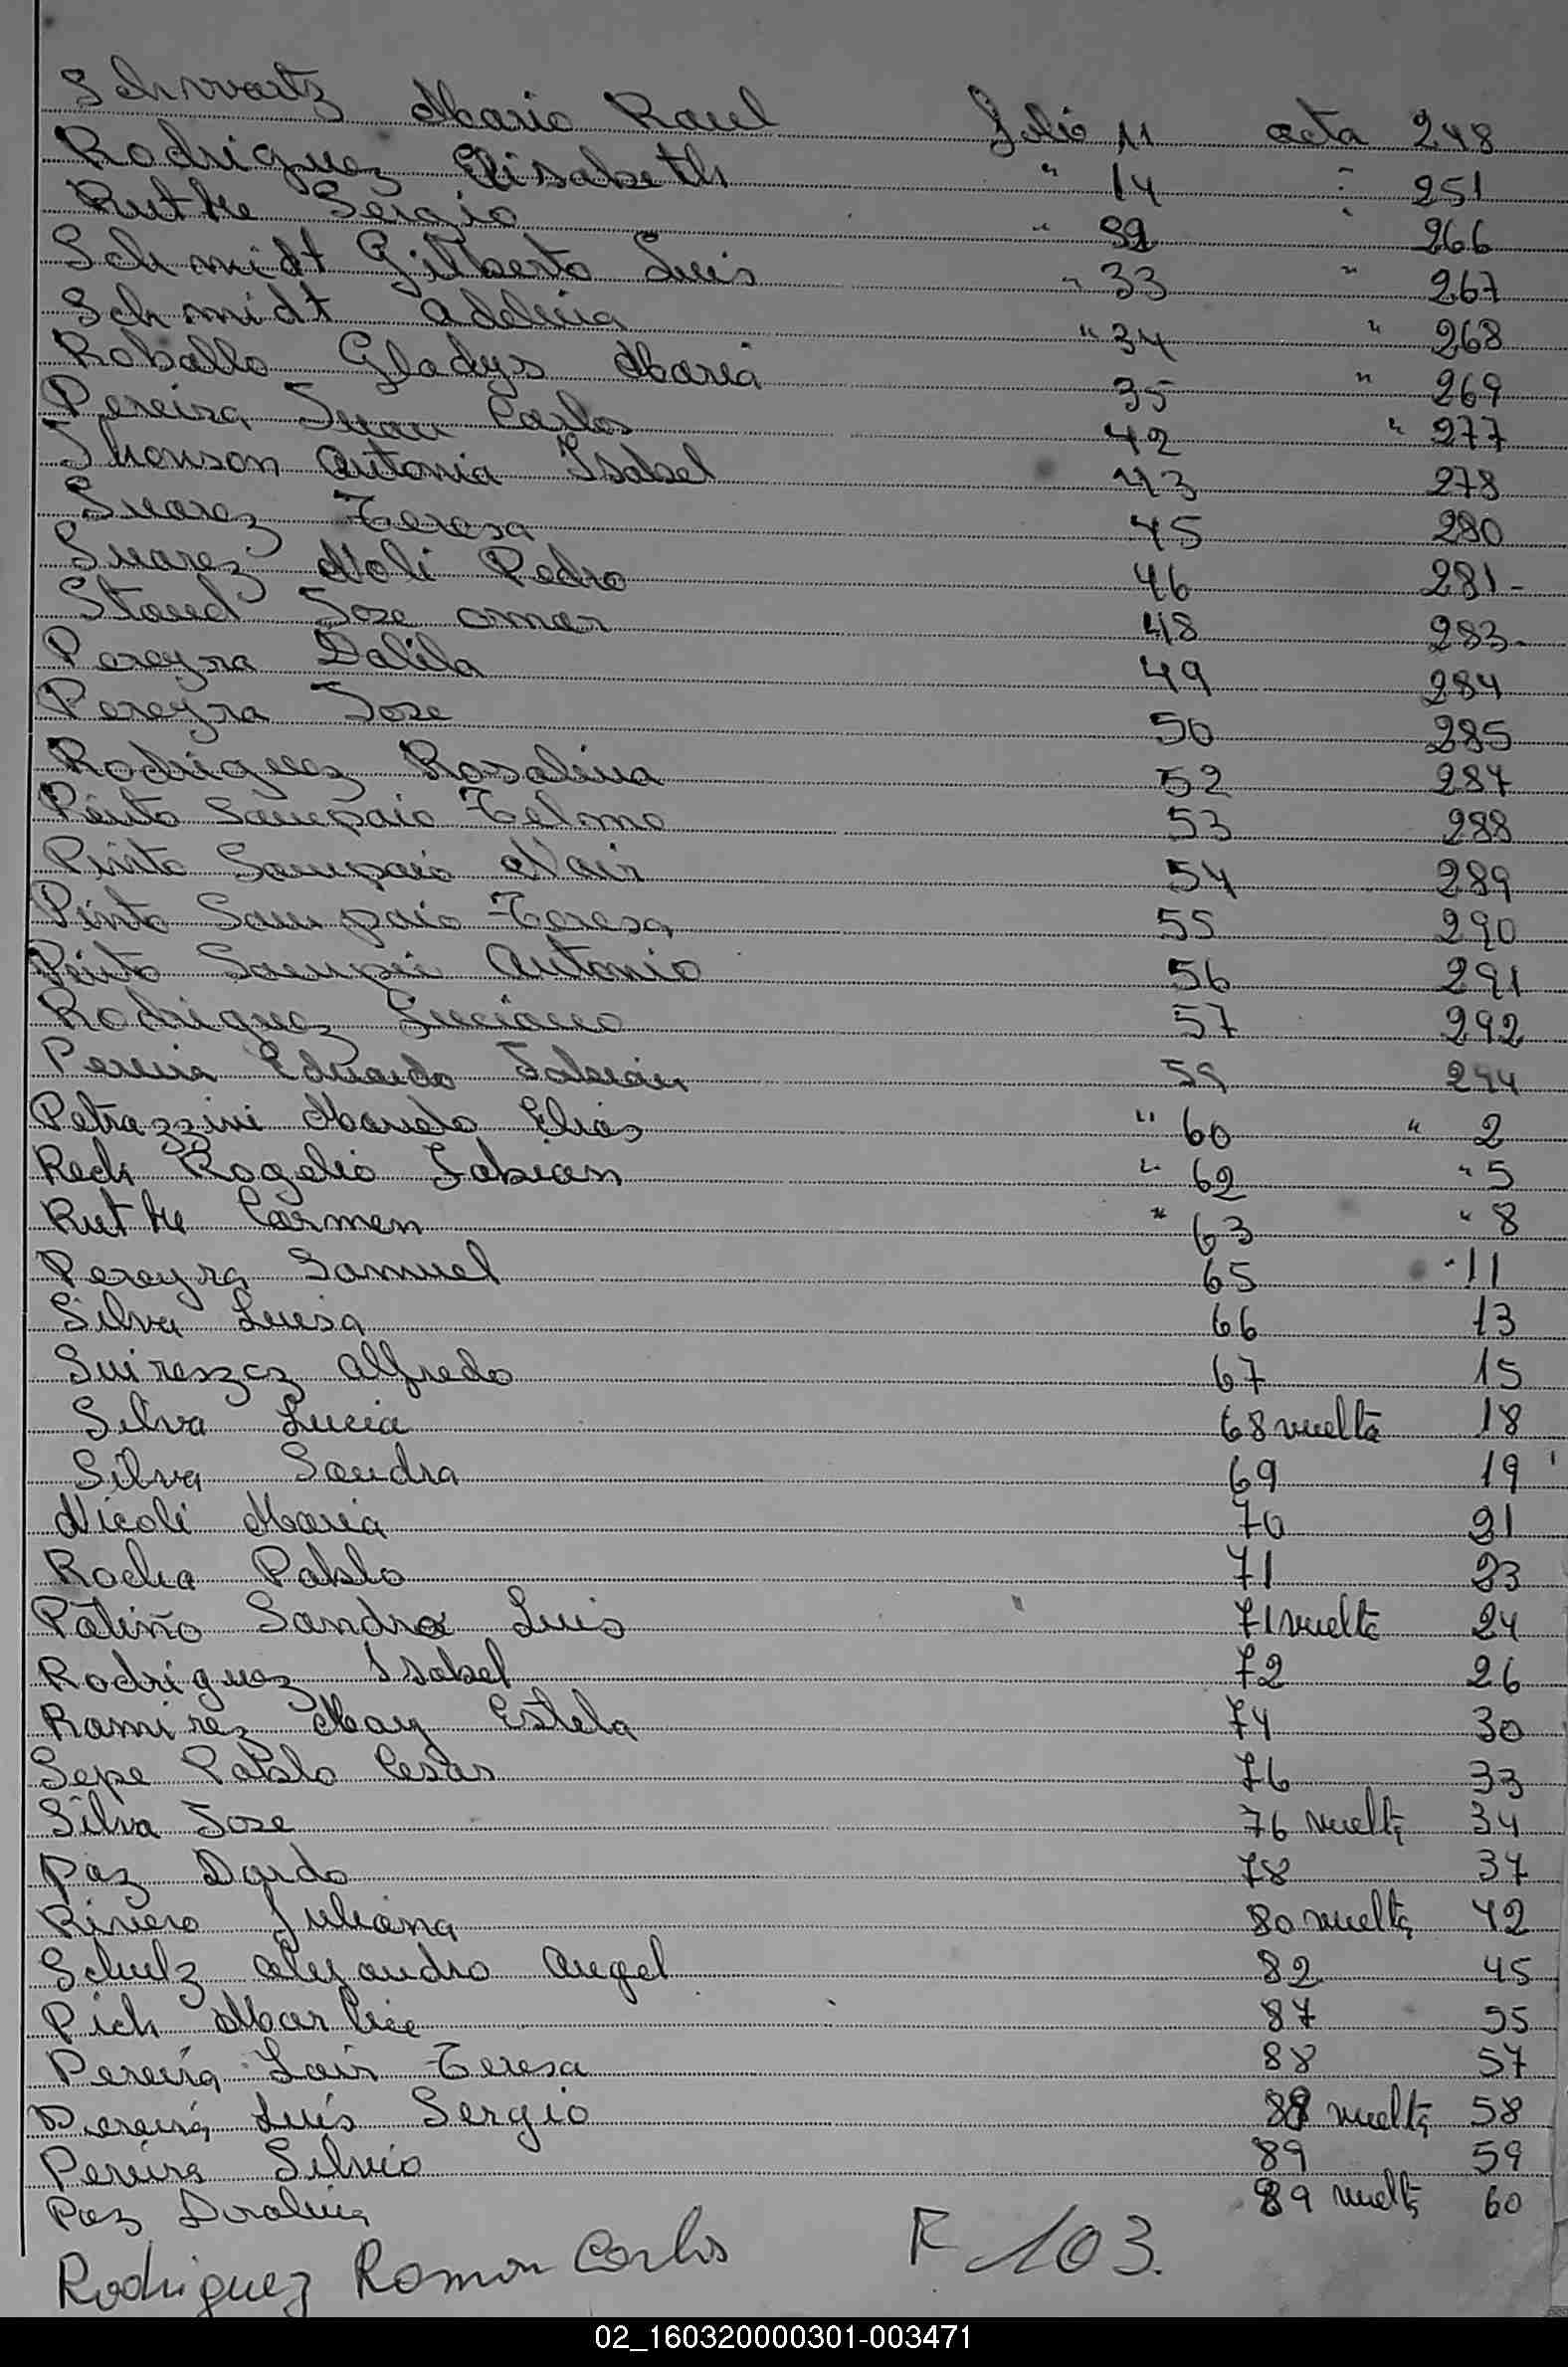 Schwartz Mario Raul Folio 11 acta 248
Rodriguez Elisabeth " 14 " 251
Ruthe Sergio " 32 " 266
Schmidt Gilberto Luis " 33 " 267
Schmidt Adelina " 34 " 268
Roballo Gladys Maria 35 " 269
Pereira Juan Carlos 42 " 277
Thonson Antonia Isabel 43 278
Suarez Teresa 45 280
Suarez Noli Pedro 46 281-
Staud Jose omar 48 283-
Pereyra Dalila 49 284
Pereyra Jose 50 285
Rodriguez Rosalina 52 287
Pinto Sampaio Telmo 53 288
Pinto Sampaio Nair 54 289
Pinto Sampaio Teresa 55 290
Pinto Sampio Antonio 56 291
Rodriguez Luciano 57 292
Pereira Eduardo Fabian 59 294
Petrazzini Marcelo Elias " 60 " 2
Rech Rogelio Fabian " 62 " 5
Ruthe Carmen " 63 " 8
Pereyra Samuel 65 " 11
Silva Luisa 66 13
Suireszcz Alfredo 67 15
Silva Lucia 68 vuelta 18
Silva Sandra 69 19
Nicoli Maria 70 21
Rocha Pablo 71 23
Patiño Sandro Luis 71 vuelta 24
Rodriguez Isabel 72 26
Ramirez May Estela 74 30
Sepe Pablo Cesar 76 33
Silva Jose 76 vuelta 34
Paz Dardo 78 37
Rivero Juliana 80 vuelta 42
Schulz Alejandro Angel 82 45
Pich Marlice 87 55
Pereira Lair Teresa 88 57
Pereira Luis Sergio 88 vuelta 58
Pereira Silvio 89 59
Paz Doralina 89 vuelta 60
Rodriguez Ramon Carlos F 103.
02_160320000301-003471